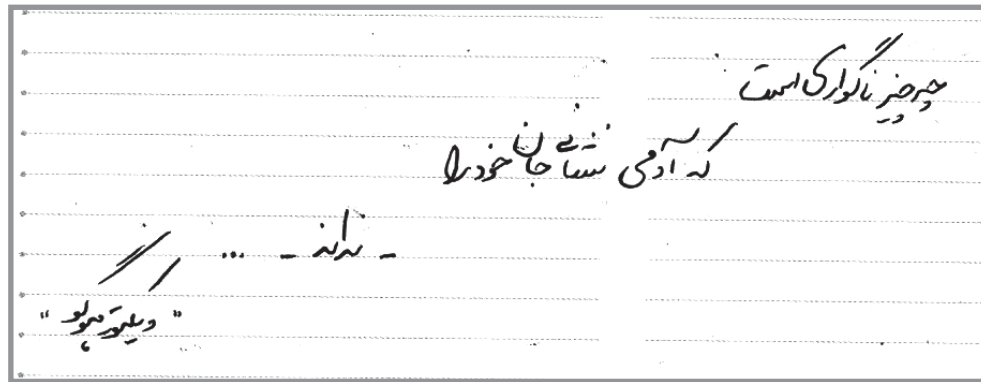 چه چیز ناگواری است
که آدمی نشانی جان خود را
- نداند - ...
"ویکتور هوگو"